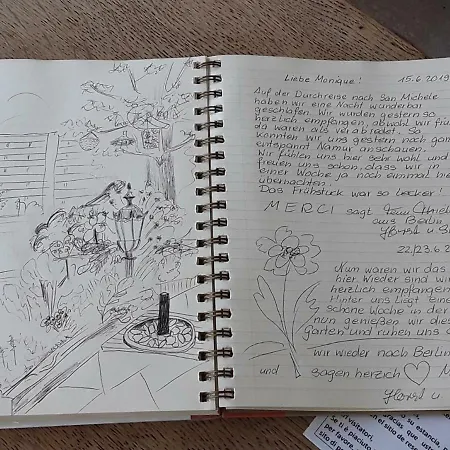 Liebe Monique! 15.6.2019
Auf der Durchreise nach San Michele
haben wir eine Nacht wunderbar
geschlafen. Wir wurden gestern so
herzlich empfangen, obwohl wir frü
da waren als verabredet. So
konnten wir uns gestern noch gan
entspannt Namur anschauen.
Wir fühlen uns hier sehr wohl und
freuen uns schon, dass wir in
einer Woche ja noch einmal hie
übernachten.
Das Frühstück war so lecker!
MERCI sagt
aus Berlin
Horst u
22/23.6.2
Nun waren wir das
hier. Wieder sind wir
herzlich empfangen
Hinter uns liegt eine
schöne Woche in der
nun genießen wir die
Garten und ruhen uns
wir wieder nach Berlin
und sagen herzlich ♡ M
Horst u
visitatori.
Se ti è piaciuto
per favore
sitio de rese